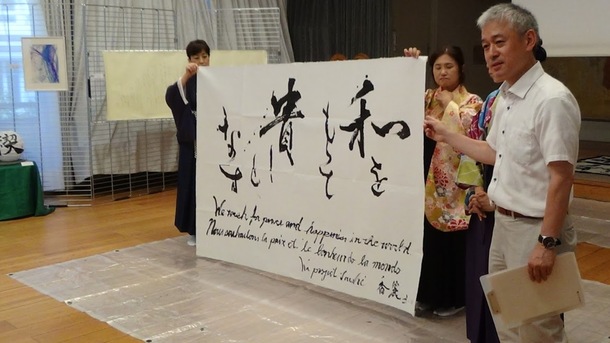 和を
もって
貴しと
なす
We wish for peace and happiness in the world
Nous souhaitons la paix et le bonheur la monde